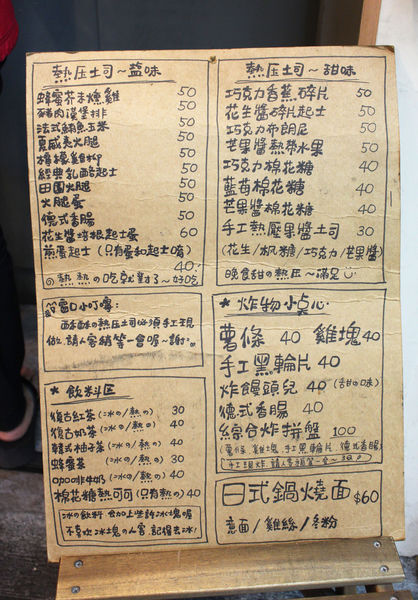 熱压土司~盐味
蜂蜜芥末燻雞 50
豬肉漢堡排 50
法式鮪魚玉米 50
夏威夷火腿 50
檸檬雞柳 50
經典乳酪起士 50
田園火腿 50
火腿蛋 50
德式香腸 50
花生醬培根起士蛋 60
蒸蛋起士 (只有蛋和起士唷)
40
熱熱の吃就對了~好吃
小叮嚀:
酥酥の熱压土司必須手工現
做,請人客稍等一會唷~謝!
* 飲料区
復古紅茶 (冰の/熱の) 30
復古奶茶 (冰の/熱の) 40
韓式柚子茶 (冰の/熱の) 40
蜂蜜茶 (冰の/熱の) 30
咖啡牛奶 (冰の/熱の) 40
棉花糖熱可可 (只有熱の) 40
冰の飲料 會加上些許冰塊喔
不喜歡冰塊の人客,記得去冰!
熱压土司~甜味
巧克力香蕉碎片 50
花生醬碎片起士 50
巧克力布朗尼 50
芒果醬熱帶水果 50
巧克力棉花糖 40
藍莓棉花糖 40
芒果醬棉花糖 40
手工熱壓果醬土司 30
(花生/楓糖/巧克力/芒果醬)
晚食甜の熱压~滿足
* 炸物小点心
薯條 40 雞塊 40
手工黑輪片 40
炸饅頭兒 40 (甜の味)
德式香腸 40
綜合炸拼盤 100
(薯條,雞塊,手工黑輪片,德式香腸)
手工現炸,請人客稍等一会~
日式鍋燒面 $60
意面/雞絲/冬粉